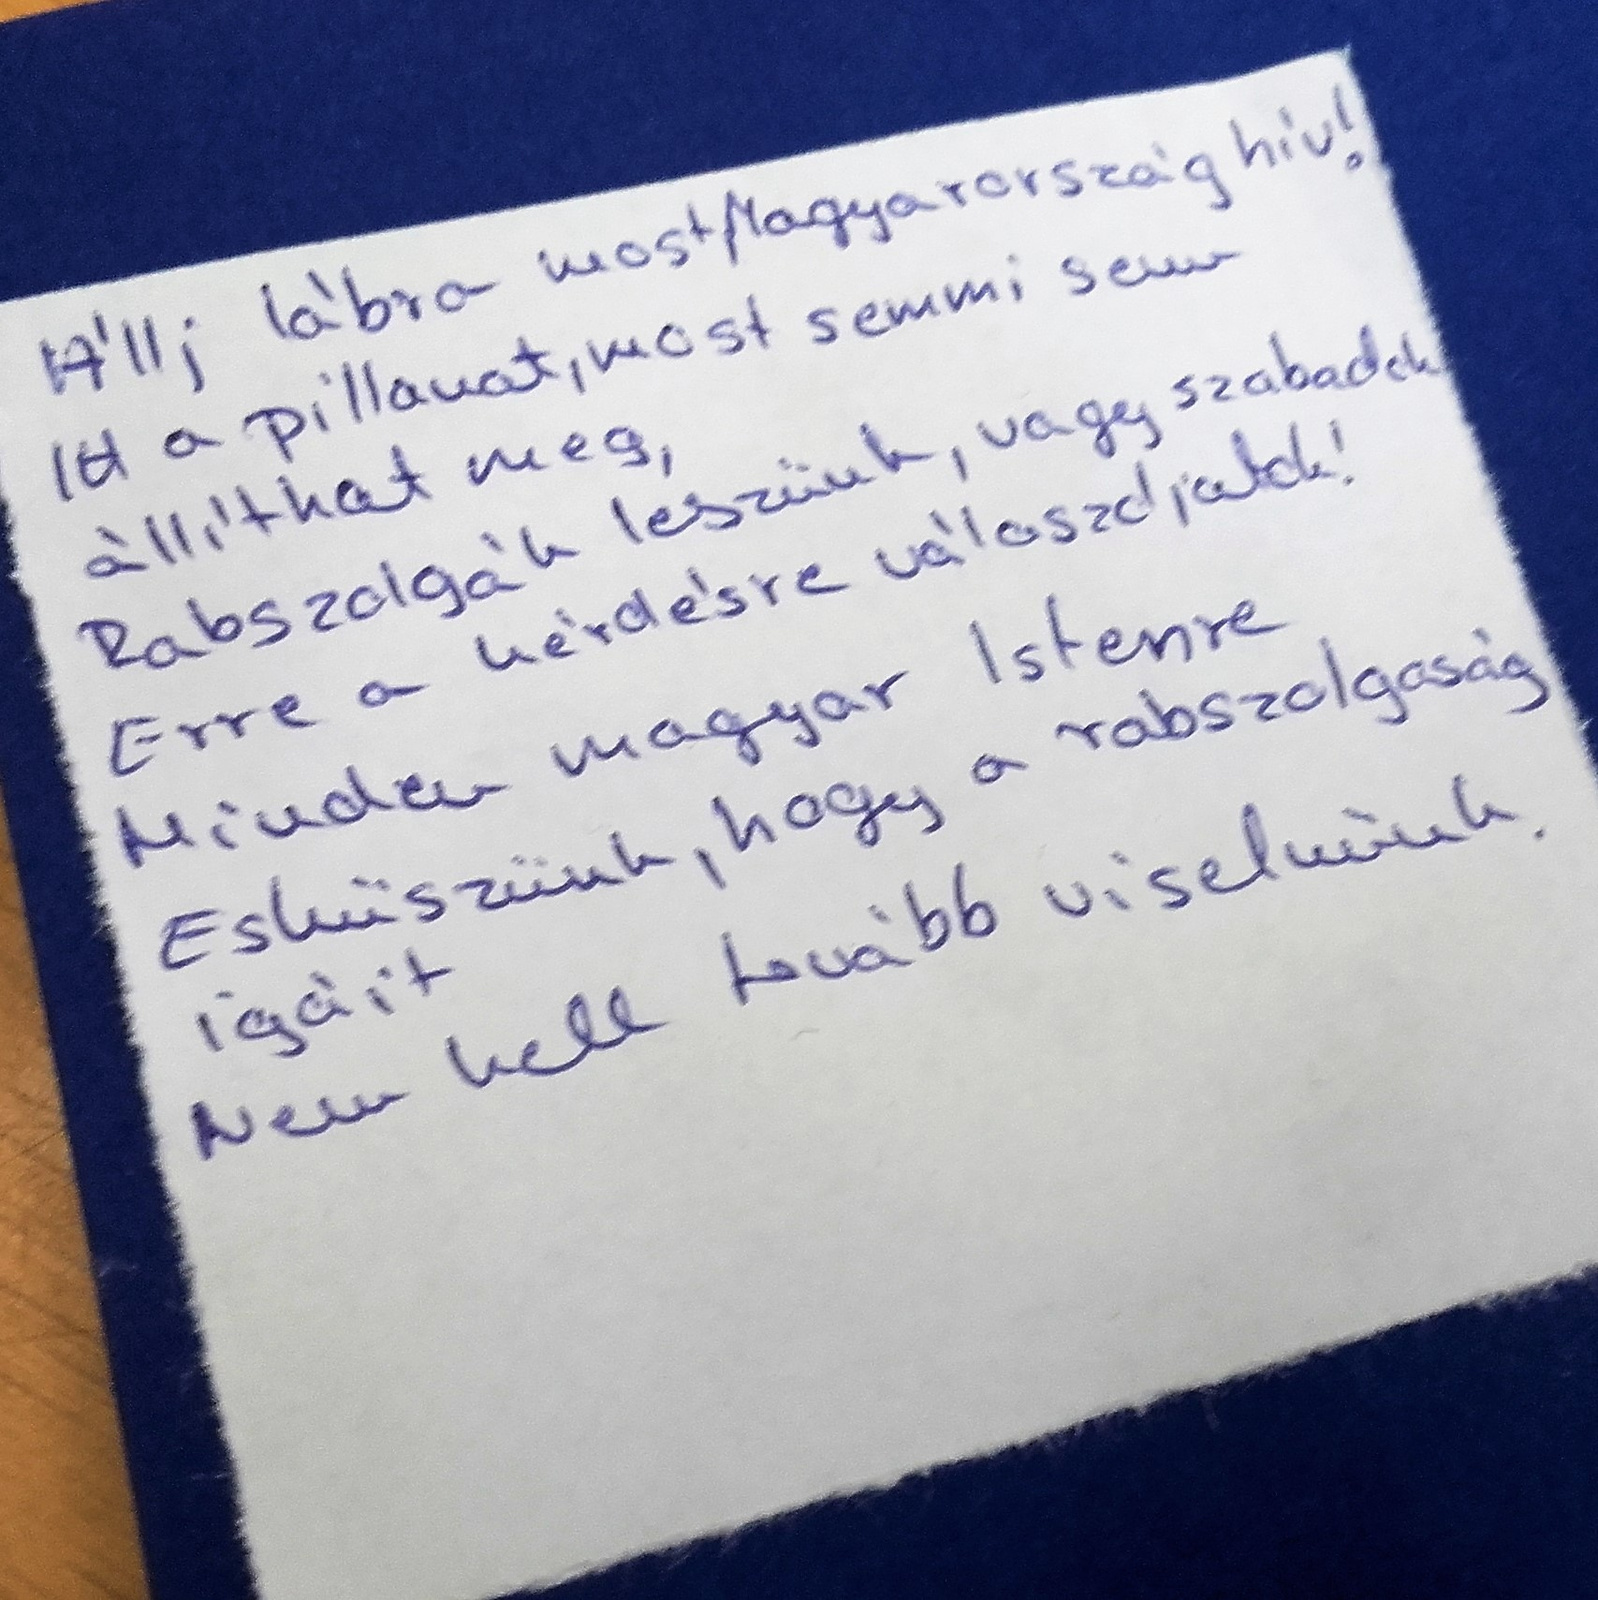 Állj lábra most, Magyarország hív!
Itt a pillanat, most semmi sem
állíthat meg,
Rabszolgák leszünk, vagy szabadok
Erre a kérdésre válaszoljatok!
Minden magyar Istenre
Esküszünk, hogy a rabszolgaság
igáit
Nem kell tovább viselnünk.